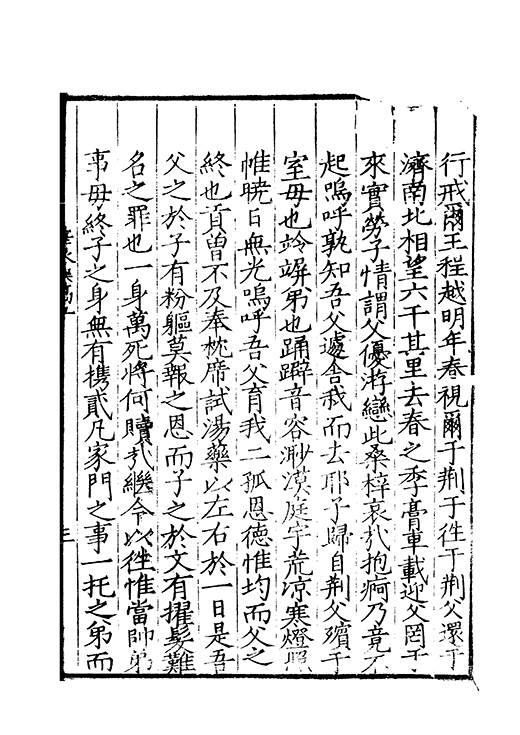 行戒爾王程越明年春視爾于荆子徃于荆父還于
濟南北相望六千其里去春之季膏車載迎父罔于
來實勞子情謂父優游戀此桑梓哀㢤抱痾乃竟不
起嗚呼孰知吾父遽舍我而去耶子歸自荆父殯于
室母也竛竮弟也踊躃音容渺漠庭宇荒凉寒燈照
帷曉日無光嗚呼吾父育我二孤恩德惟均而父之
終也貢曾不及奉枕席試湯藥以左右於一日是吾
父之於子有粉軀莫報之恩而子之於文有擢髪難
名之罪也一身萬死將何贖㢤繼今以徃惟當帥弟
事母終子之身無有携貳凡家門之事一托之弟而
三